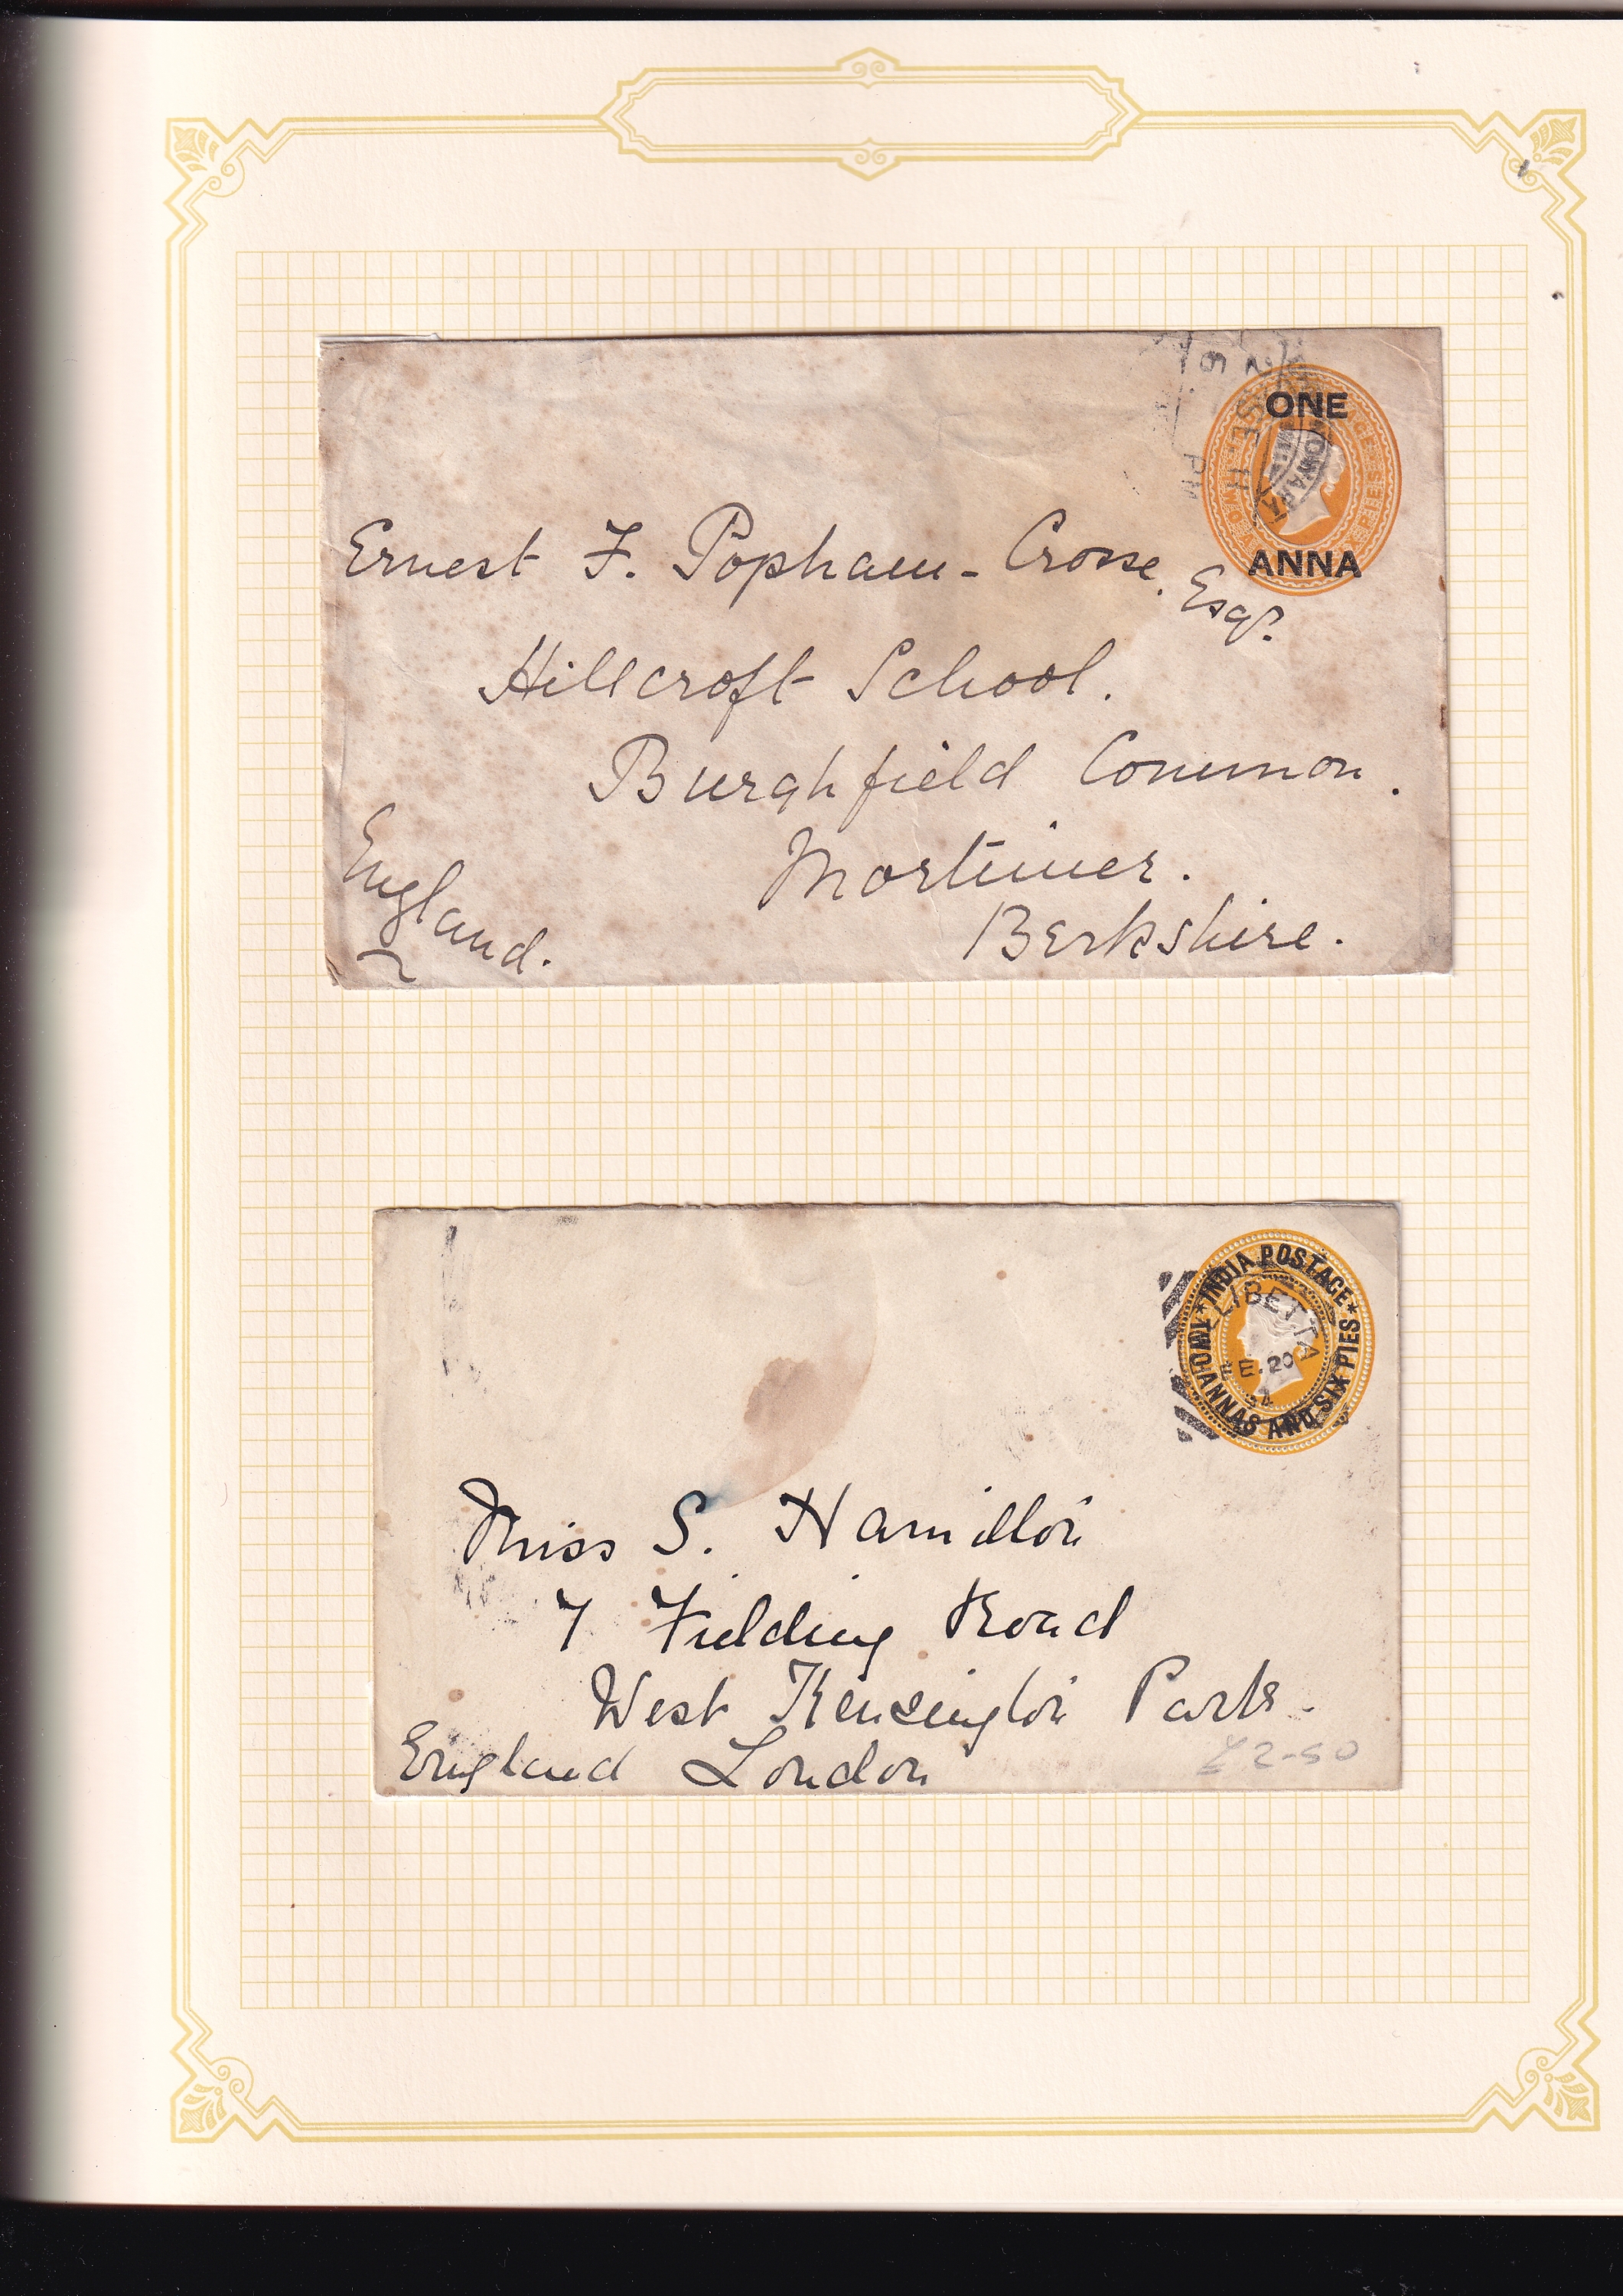 ONE
ANNA
Ernest F. Popham-Crosse. Esqr.
Hillcroft School.
Burghfield Common.
Mortimer.
Berkshire.
England.
INDIA POSTAGE
TWO ANNAS AND SIX PIES
LIBETTA
FE. 20
Miss S. Hamilton
7 Fielding Road
West Kensington Park.
England London
£2-50